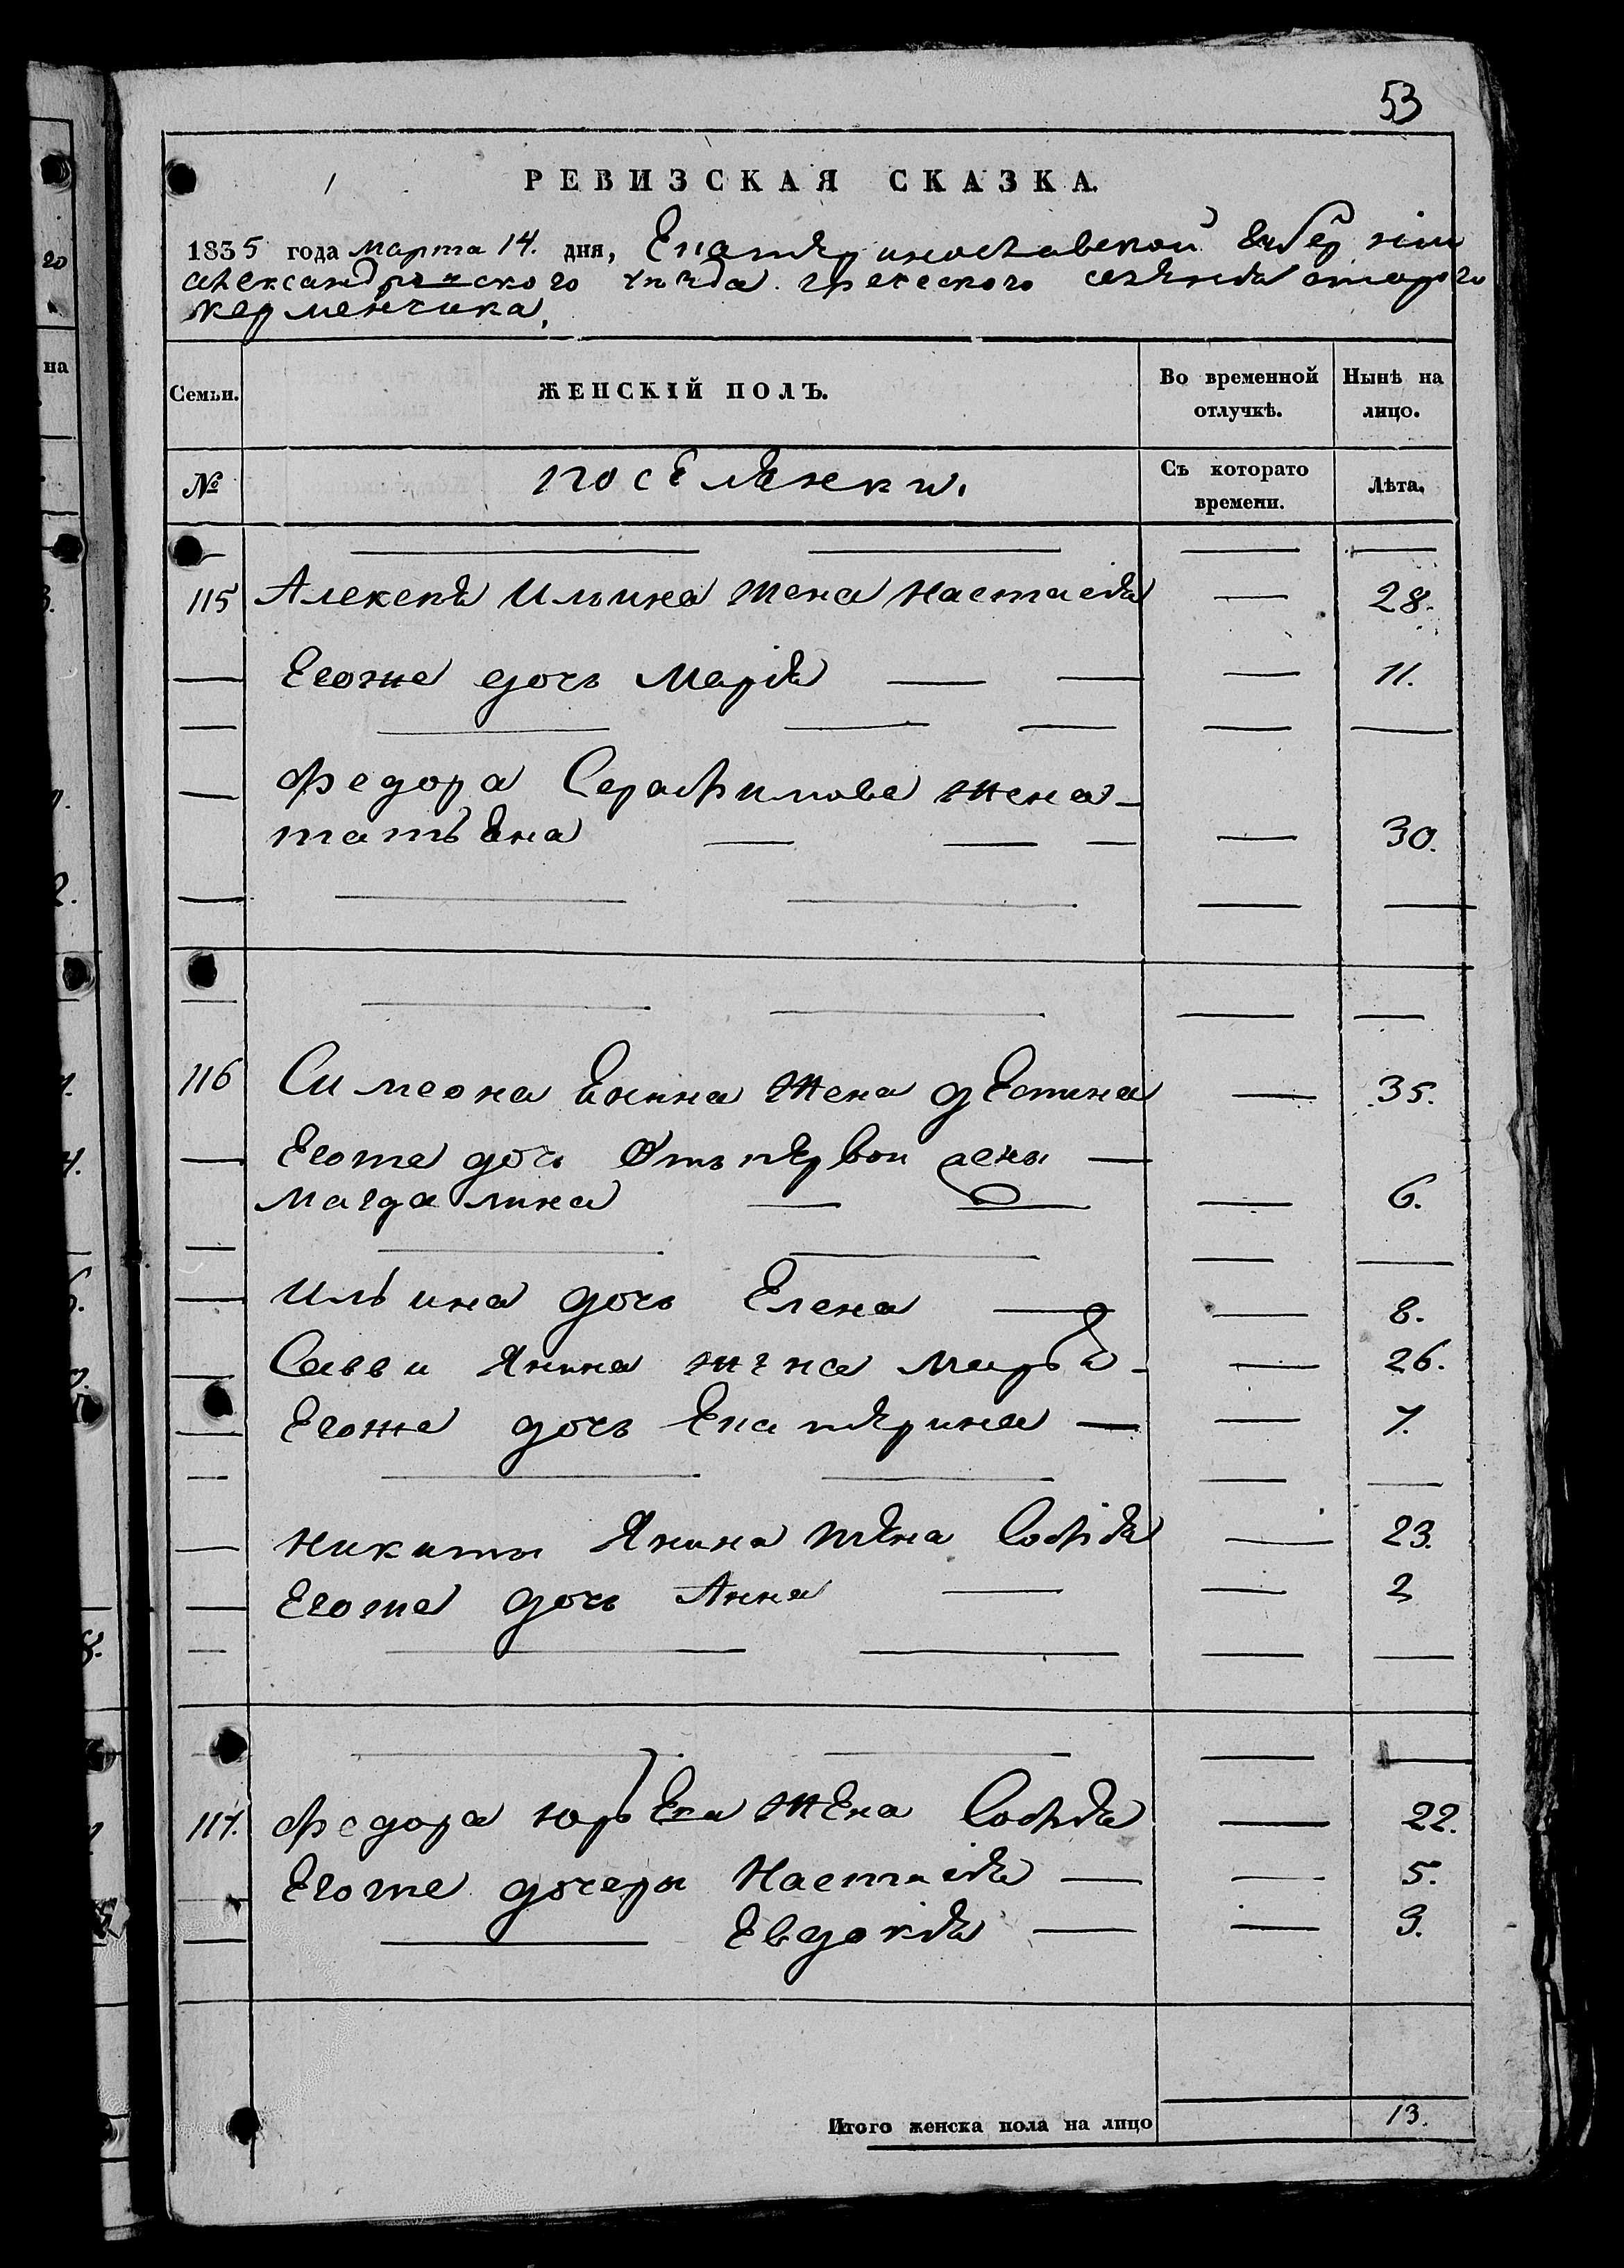 53
РЕВИЗСКАЯ СКАЗКА.
1835 года марта 14. дня, Екатяринославской губернiи
александровского уезда греческого селения старого
керменчика,
Семьи. ЖЕНСКІЙ ПОЛЪ. Во временной отлучкѣ. Нынѣ на лицо.
№ поселянки. Съ котораго времени. Лѣта.
115 Алексея Ильина жена Настасія — 28.
— Егоже дочь Марія — — — 11.
— Федора Серафимова жена —
татьяна — — — — 30.
116 Симеона Енина жена дестина — 35.
— Егоже дочь Отъ первой жены —
Магдалина — — — 6.
— Ильина дочь Елена — — 8.
— Саввы Янина жена Марья — — 26.
— Егоже дочь Екатярина — — 7.
— Никиты Янина жена Софія — 23.
— Егоже дочь Анна — — 2
117. Федора юрьева жена Софія — 22.
— Егоже дочери Настасія — — 5.
— — Евдокія — — 3.
Итого женска пола на лицо 13.
20
на